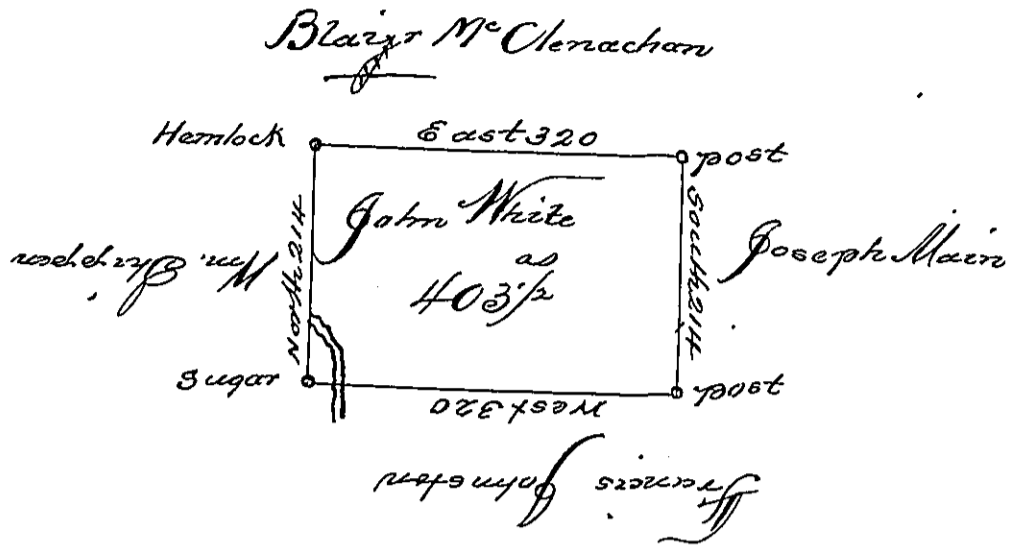 Blair McClenachan
Hemlock
East 320
post
North 214
John White
as
403 1/2
South 214
Joseph Main
Sugar
West 320
post
Francis Johnston